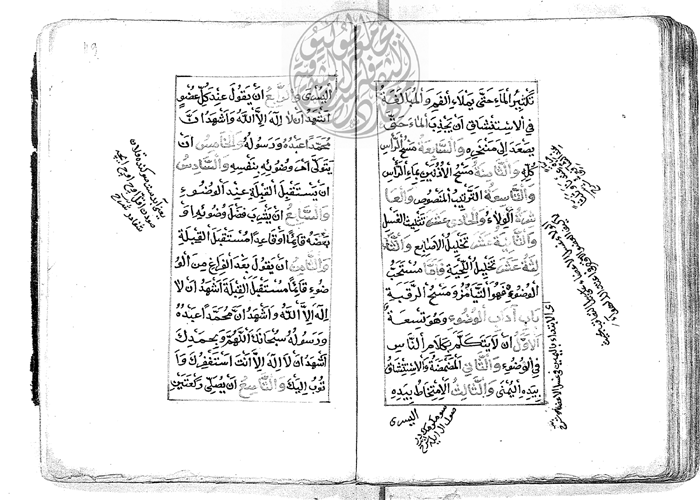 تَكْثِيرُ الْمَاءِ حَتَّى يَمْلَاءَ الْفَمِ وَالْمُبَالَغَةُ
فِي الْاِسْتِنْشَاقِ اَنْ يَجْذِبَ الْمَاءَ حَتَّى
يَصْعَدَ اِلَى مَنْخِرِهِ وَالسَّابِعَةُ مَسْحُ الرَّأْسِ
كُلِّهِ وَالثَّامِنَةُ مَسْحُ الْاُذُنَيْنِ بِمَاءِ الرَّأْسِ
وَالتَّاسِعَةُ التَّرْتِيبُ الْمَنْصُوصُ وَالْعَا
شِرَةُ الْوِلَاءُ وَالْحَادِيَ عَشَرَ تَثْلِيثُ الْغَسْلِ
وَالثَّانِيَةَ عَشَرَ تَخْلِيلُ الْاَصَابِعِ وَالثَّا
لِثَةَ عَشَرَ تَخْلِيلُ اللِّحْيَةِ وَاَمَّا مُسْتَحَبُّ
الْوُضُوءِ فَهُوَ التَّيَامُنُ وَمَسْحُ الرَّقَبَةِ
بَابُ آدَابِ الْوُضُوءِ وَهُوَ تِسْعَةٌ
الْاَوَّلُ اَنْ لَا يَتَكَلَّمَ بِكَلَامِ النَّاسِ
فِي الْوُضُوءِ وَالثَّانِي الْمَضْمَضَةُ وَالْاِسْتِنْشَاقُ
بِيَدِهِ الْيُمْنَى وَالثَّالِثُ الْاِمْتِخَاطُ بِيَدِهِ
اليسرى
الْيُسْرَى وَالرَّابِعُ اَنْ يَقُولَ عِنْدَ كُلِّ عُضْوٍ
اَشْهَدُ اَنْ لَا اِلَهَ اِلَّا اللَّهُ وَاَشْهَدُ اَنَّ
مُحَمَّدًا عَبْدُهُ وَرَسُولُهُ وَالْخَامِسُ اَنْ
يَتَوَلَّى اَمْرَ وُضُوئِهِ بِنَفْسِهِ وَالسَّادِسُ
اَنْ يَسْتَقْبِلَ الْقِبْلَةَ عِنْدَ الْوُضُوءِ
وَالسَّابِعُ اَنْ يَشْرَبَ فَضْلَ وَضُوئِهِ اَوْ
بَعْضَهُ قَائِمًا اَوْ قَاعِدًا مُسْتَقْبِلَ الْقِبْلَةِ
وَالثَّامِنُ اَنْ يَقُولَ بَعْدَ الْفَرَاغِ مِنَ الْوُ
ضُوءِ قَائِمًا مُسْتَقْبِلَ الْقِبْلَةِ اَشْهَدُ اَنْ لَا
اِلَهَ اِلَّا اللَّهُ وَاَشْهَدُ اَنَّ مُحَمَّدًا عَبْدُهُ
وَرَسُولُهُ سُبْحَانَكَ اللَّهُمَّ وَبِحَمْدِكَ
اَشْهَدُ اَنْ لَا اِلَهَ اِلَّا اَنْتَ اَسْتَغْفِرُكَ وَاَ
تُوبُ اِلَيْكَ وَالتَّاسِعُ اَنْ يُصَلِّيَ رَكْعَتَيْنِ